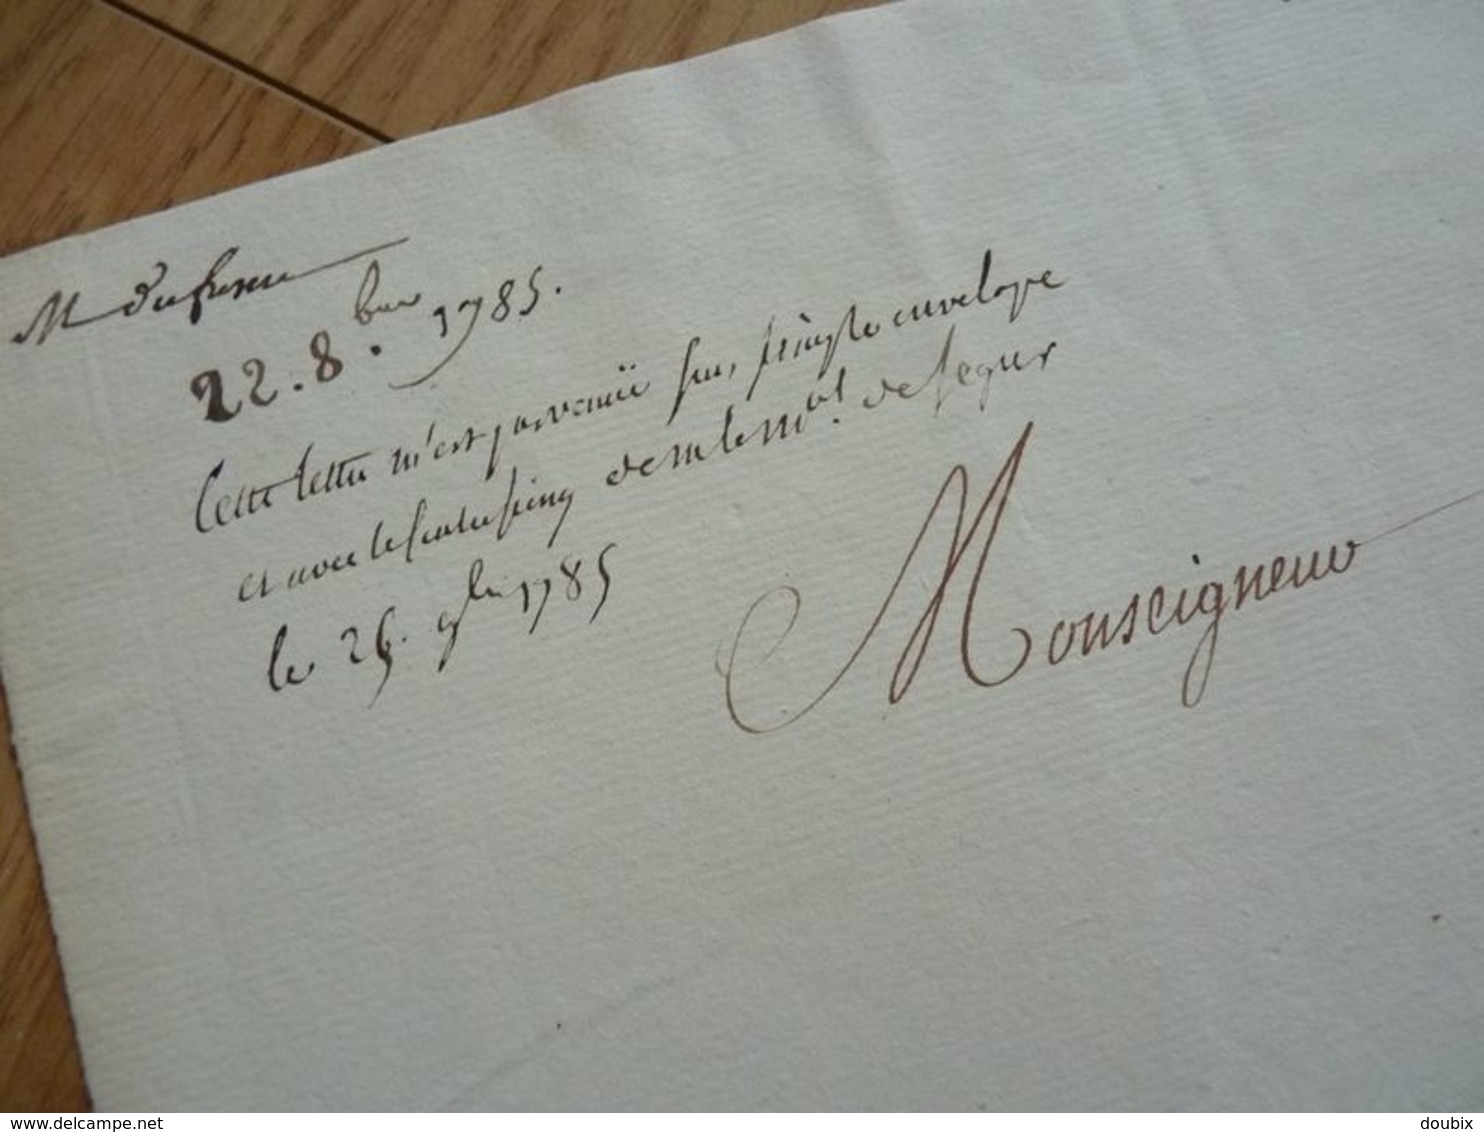 M dufresne
22. 8.bre 1785.
Cette lettre m'est parvenüe sur, simple envelope
et avec le contreseing de m le mal. de segur
le 25. 9bre 1785
Monseigneur
delcampe.net
doubix